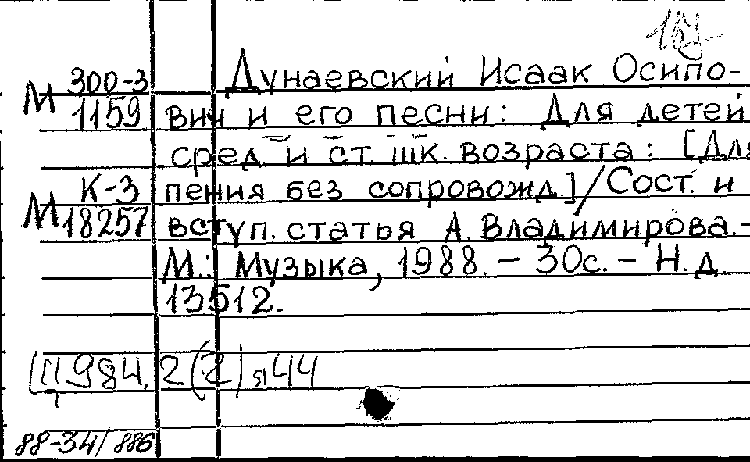 М 300-3 Дунаевский Исаак Осипо-
1159 вич и его песни: Для детей
сред. и ст. шк. возраста: [Для
М К-3 пения без сопровожд.]/Сост. и
18257 вступ. статья А. Владимирова.-
М.: Музыка, 1988. - 30с. - Н.д.
13512.
Щ984.2(2)я44
88-34/886